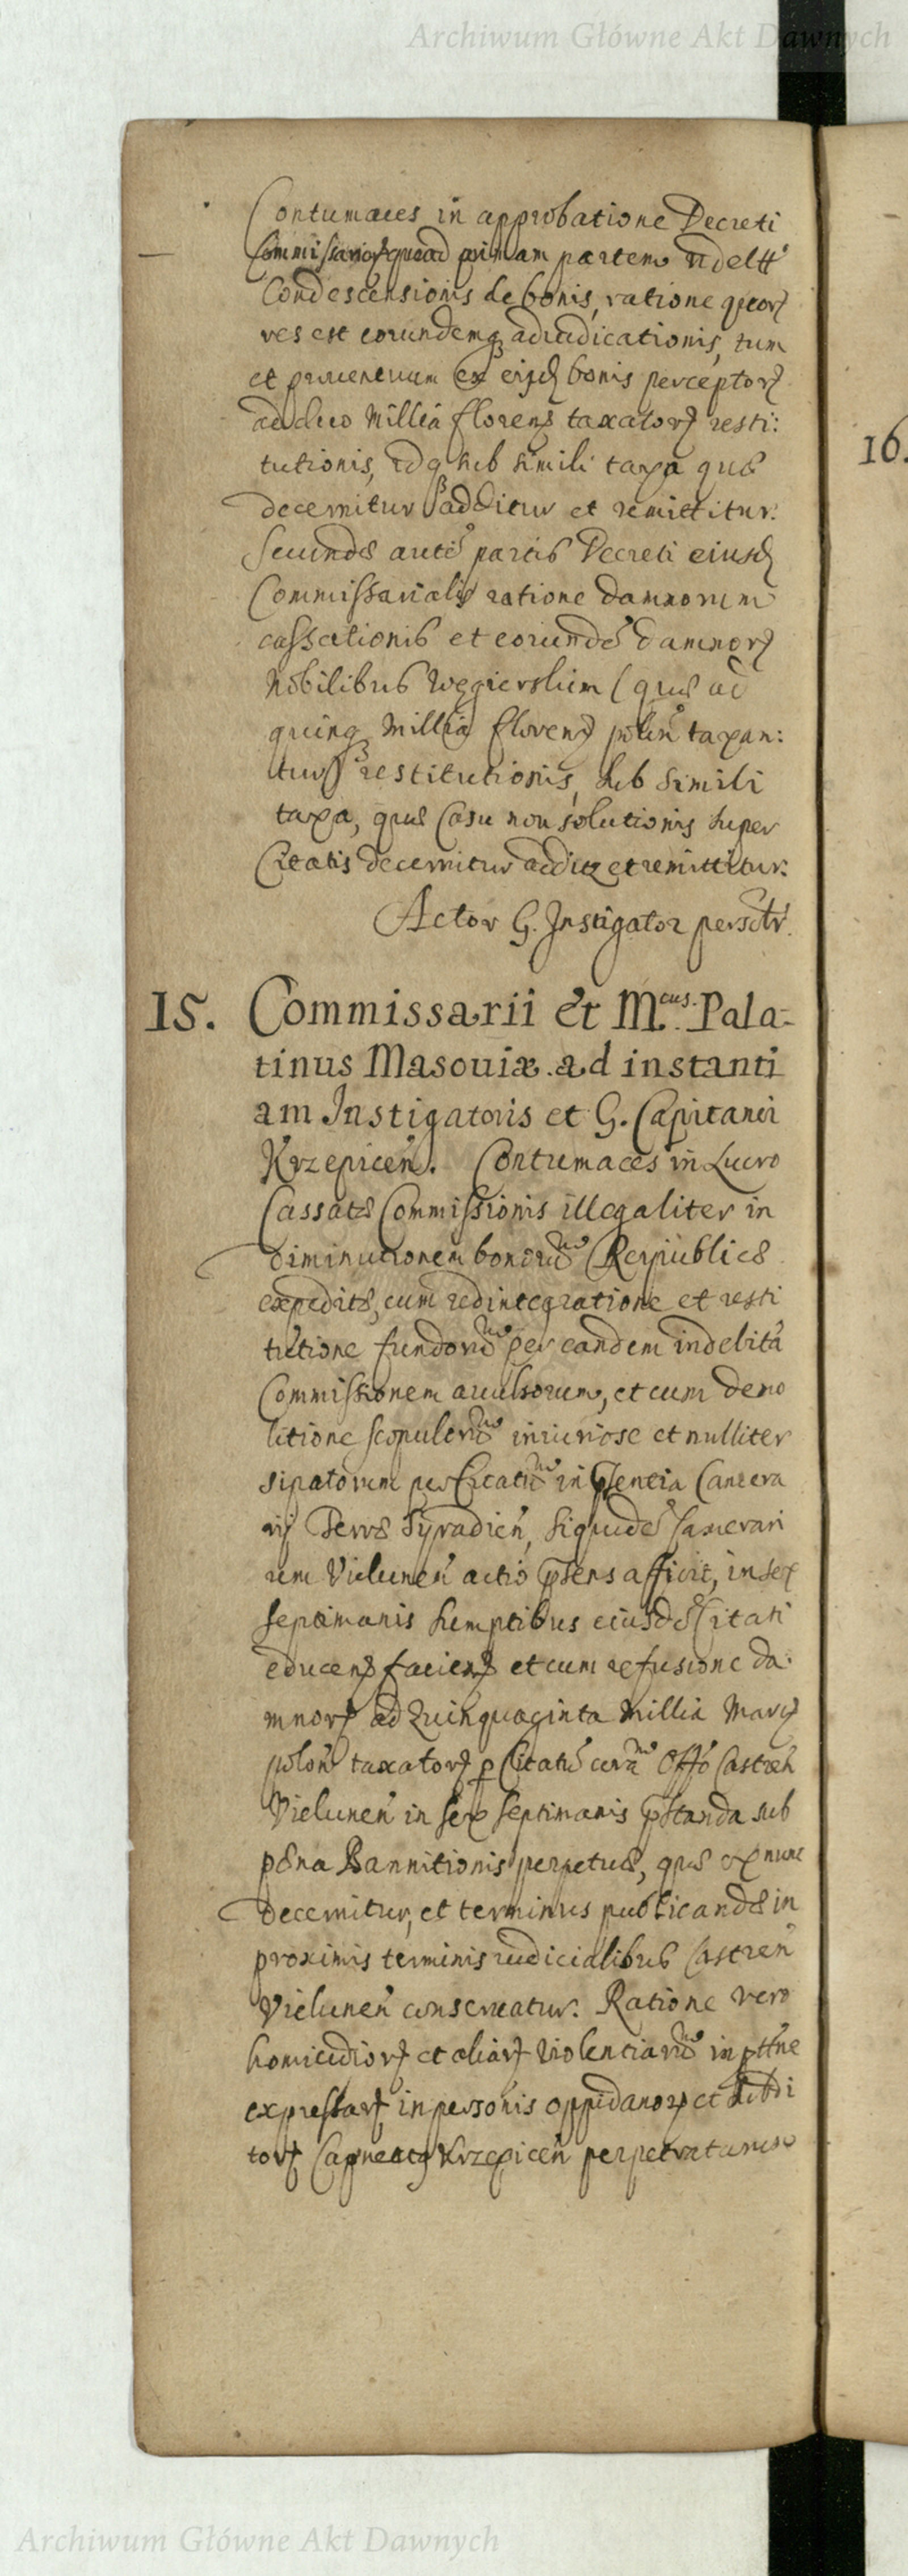 Archiwum Główne Akt Dawnych
Contumaces in approbatione Decreti
Commissarior quoad primam partem
Condescensionis de bonis, ratione quor
res est eorundemq adiudicationis, tum
et prouentuum ex eisd bonis perceptor
ad duo Millia floren taxator resti:
tutionis, idq sub simili taxa quæ
decernitur additur et remittitur.
Secundæ autē partis Decreti eiusd
Commissarialis ratione damnorum
cassationis et eorundē damnor
Nobilibus Węgierskim (quæ ad
quinq Millia floren polon taxan:
tur) restitutionis, sub simili
taxa, quæ Casu non solutionis super
Citatis decernitur additr et remittitur.
Actor G. Instigator person
15. Commissarii et M.cus Pala-
tinus Masouiæ ad instanti
am Instigatoris et G. Capitanei
Krzepicen. Contumaces in Lucro
Cassatæ Commissionis illegaliter in
diminutionem bonorū Reipublicæ
expeditæ, cum redintegratione et resti
tutione fundorū per eandem indebitā
Commissionem auulsorum, et cum demo
litione scopulorū iniuriose et nulliter
sipatorum per Citatū in pñtia Camera
rij Terræ Syradien, siquidē Camerari
um Vielunen actio pñsens afficit, in sex
septimanis sumptibus eiusdē Citati
educen facien et cum refusione da:
mnor ad Quinquaginta Millia Marc
polon taxator p Citatū corā Offo Castren
Vielunen in sex septimanis pstanda sub
pæna Bannitionis perpetuæ, quæ ex nunc
decernitur, et terminus publicandæ in
proximis terminis iudicialibus Castren
Vielunen conseruatur. Ratione vero
homicidior et aliar violentiarū in pttne
expressar, in personis oppidanor et subdi
tor Capneatq Krzepicen perpetratarum
16.
Archiwum Główne Akt Dawnych